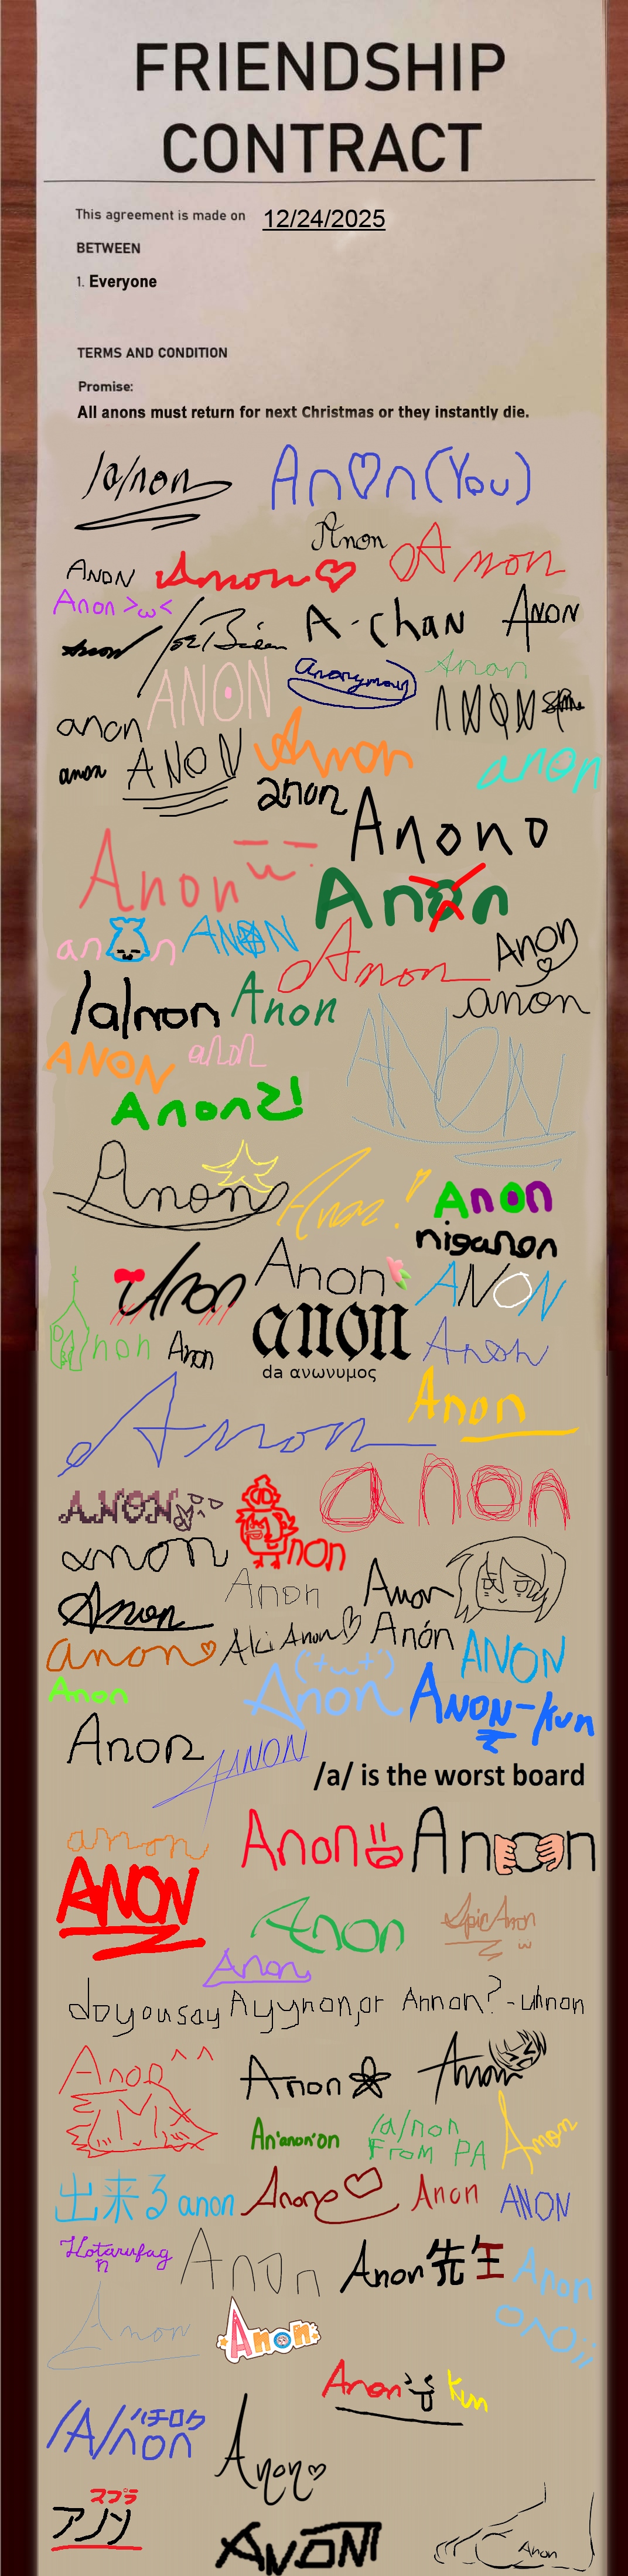 FRIENDSHIP
CONTRACT
This agreement is made on 12/24/2025
BETWEEN
1. Everyone
TERMS AND CONDITION
Promise:
All anons must return for next Christmas or they instantly die.
/a/non
An♡n (You)
Anon
Anon
ANON
Anon♡
Anon >ω<
Anon
Joe Biden
A-chan
ANON
ANON
Anonymous
Anon
anon
ANON
anon
ANON
Anon
anon
anon
Anono
Anon
Anon
an n
ANON
Anon
Anon
/a/non
Anon
anon
ANON
anon
ANON
Anon2!
Anon
Anon!
Anon
niganon
Anon
Anon
ANON
non
Anon
anon
da ανωνυμος
Anon
Anon
Anon
ANON
non
anon
anon
Anon
Anon
Anon
anon♡
Aki Anon♡
Anón
ANON
Anon
Anon
(+_+)
ANON-kun
Anon
ANON
/a/ is the worst board
anon
Anon
Anon
ANON
Anon
EpicAnon
Anon
do you say Ayynon, or Annon? -
Anon ^^
Anon
Anon
An'anon'on
/a/non
FROM PA
Anon
出来る anon
Anon♡
Anon
ANON
Hotarufag
n
Anon
Anon先生
Anon
Anon
Anon
Anon
kun
/A/non
ハチロク
Anon♡
スプラ
アノン
ANON
Anon